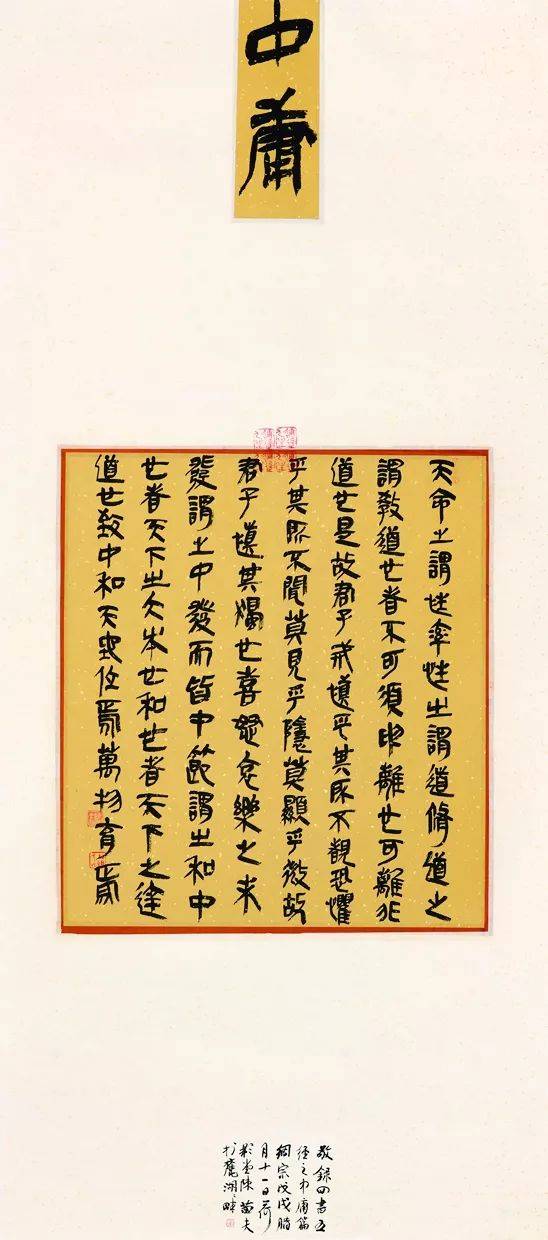 中庸
天命之謂性率性之謂道脩道之
謂教道也者不可須臾離也可離非
道也是故君子戒慎乎其所不覩恐懼
乎其所不聞莫見乎隱莫顯乎微故
君子慎其獨也喜怒哀樂之未
發謂之中發而皆中節謂之和中
也者天下之大本也和也者天下之達
道也致中和天地位焉萬物育焉
敬録四書五
經之中庸篇
戊戌腊
月十一日荷
陳
於麓湖畔